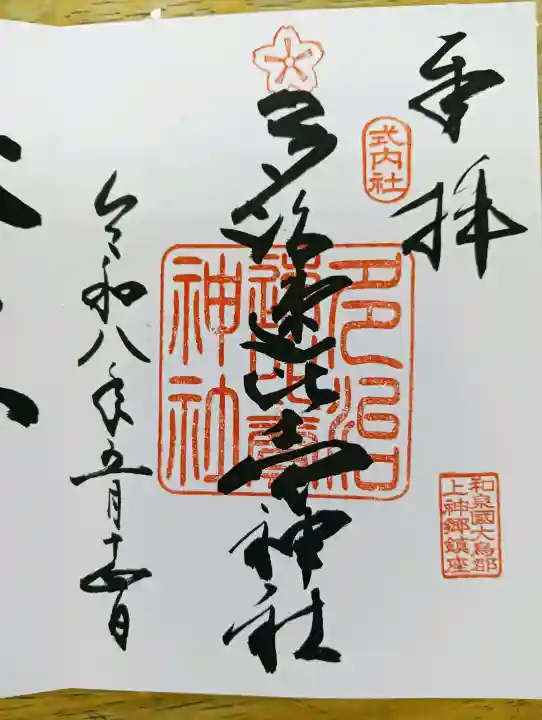 奉拝
式内社
和泉國大鳥郡
上神郷鎮座
多治速比売神社
多治
速比賣
神社
令和八年五月日